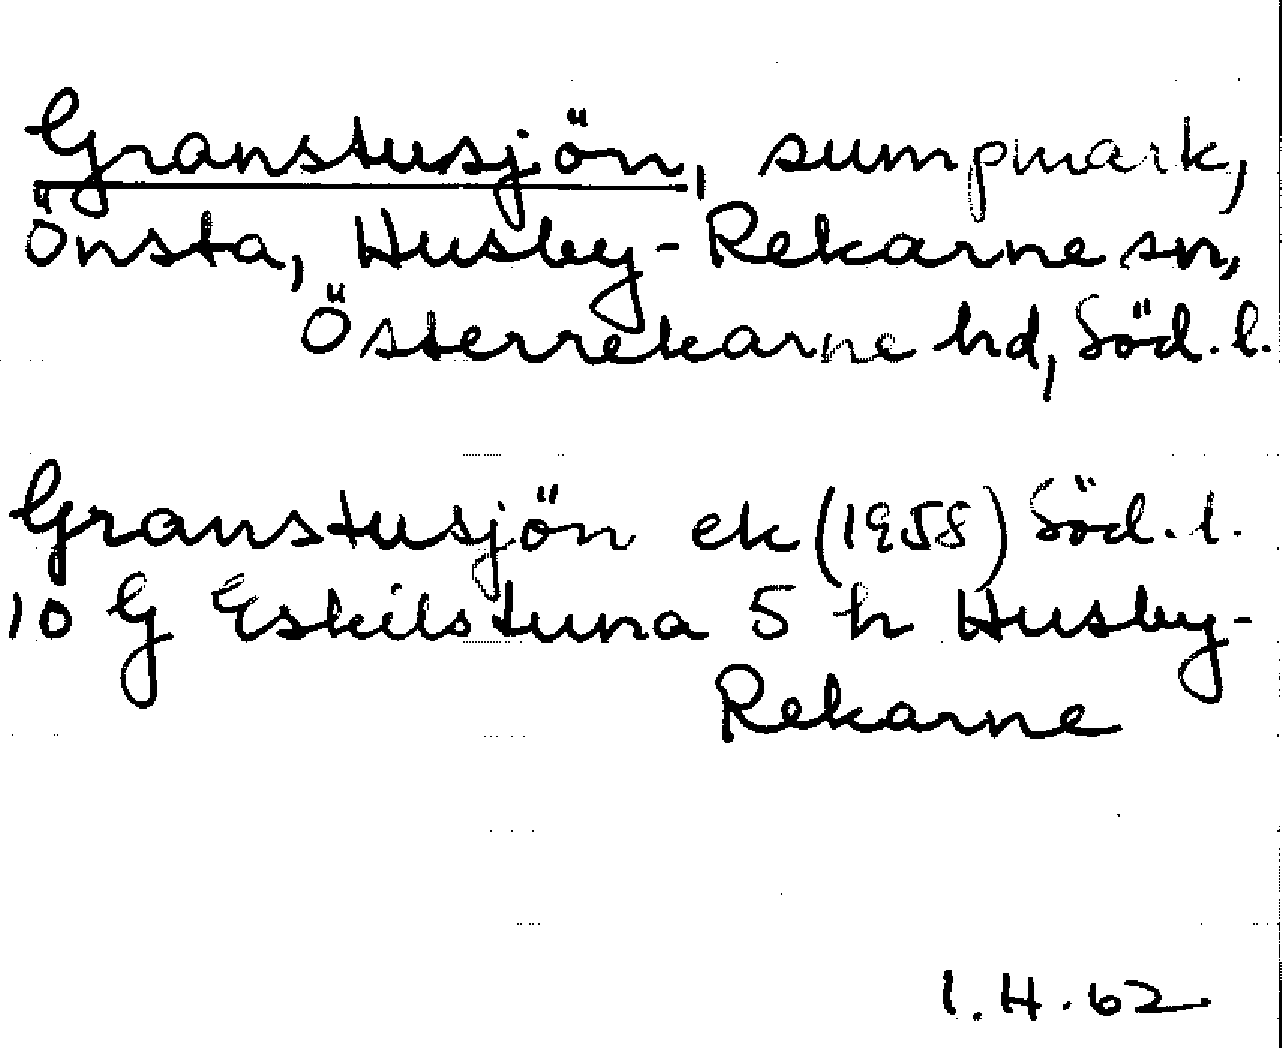 Granstusjön, sumpmark,
Önsta, Husby-Rekarne sn,
Österrekarne hd, Söd. l.
Granstusjön ek (1958) Söd. l.
10 G Eskilstuna 5 h Husby-
Rekarne
1.4.62